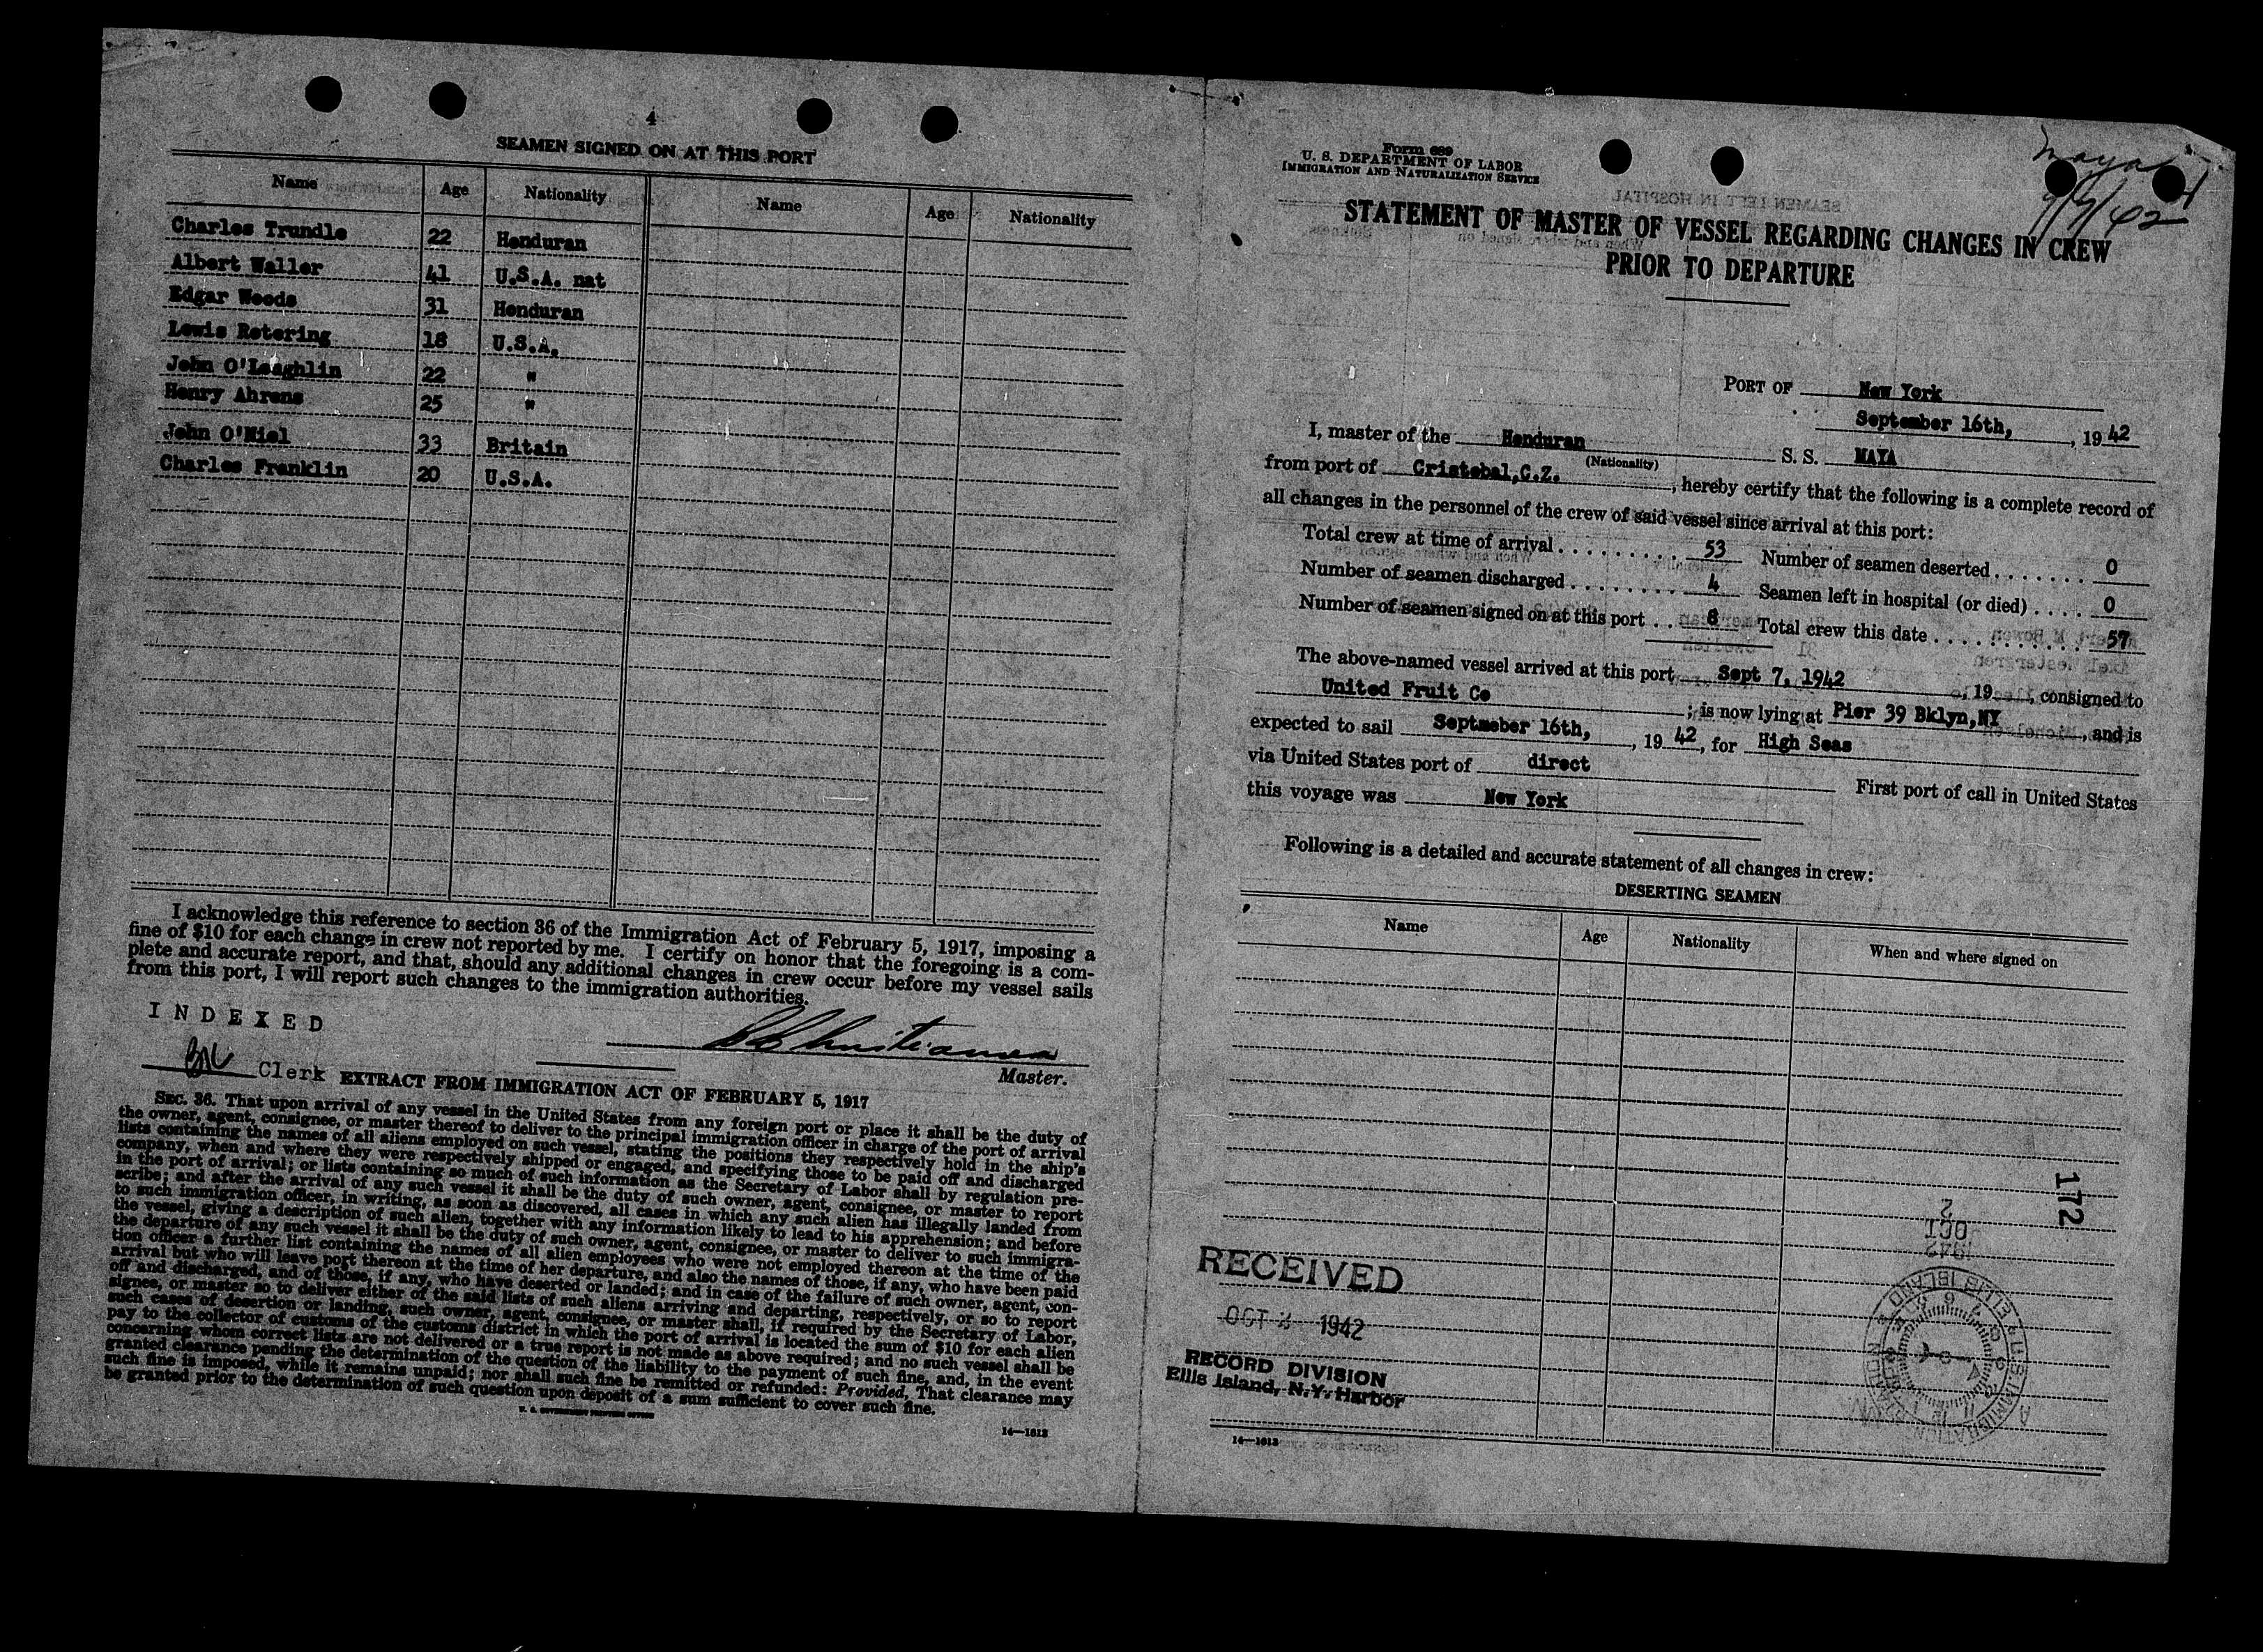 4
SEAMEN SIGNED ON AT THIS PORT
Name Age Nationality Name Age Nationality
Charles Trundle 22 Honduran
Albert Waller 41 U.S.A. nat
Edgar Woods 31 Honduran
Lewis Retering 18 U.S.A.
John O'Loaghlin 22 "
Henry Ahrens 25 "
John O'Niel 33 Britain
Charles Franklin 20 U.S.A.
I acknowledge this reference to section 36 of the Immigration Act of February 5, 1917, imposing a
fine of $10 for each change in crew not reported by me. I certify on honor that the foregoing is a com-
plete and accurate report, and that, should any additional changes in crew occur before my vessel sails
from this port, I will report such changes to the immigration authorities.
INDEXED
Master.
Clerk
EXTRACT FROM IMMIGRATION ACT OF FEBRUARY 5, 1917
SEC. 36. That upon arrival of any vessel in the United States from any foreign port or place it shall be the duty of
the owner, agent, consignee, or master thereof to deliver to the principal immigration officer in charge of the port of arrival
lists containing the names of all aliens employed on such vessel, stating the positions they respectively hold in the ship's
company, when and where they were respectively shipped or engaged, and specifying those to be paid off and discharged
in the port of arrival; or lists containing so much of such information as the Secretary of Labor shall by regulation pre-
scribe; and after the arrival of any such vessel it shall be the duty of such owner, agent, consignee, or master to report
to such immigration officer, in writing, as soon as discovered, all cases in which any such alien has illegally landed from
the vessel, giving a description of such alien, together with any information likely to lead to his apprehension; and before
the departure of any such vessel it shall be the duty of such owner, agent, consignee, or master to deliver to such immigra-
tion officer a further list containing the names of all alien employees who were not employed thereon at the time of the
arrival but who will leave port thereon at the time of her departure, and also the names of those, if any, who have been paid
off and discharged, and of those, if any, who have deserted or landed; and in case of the failure of such owner, agent, con-
signee, or master so to deliver either of the said lists of such aliens arriving and departing, respectively, or so to report
such cases of desertion or landing, such owner, agent, consignee, or master shall, if required by the Secretary of Labor,
pay to the collector of customs of the customs district in which the port of arrival is located the sum of $10 for each alien
concerning whom correct lists are not delivered or a true report is not made as above required; and no such vessel shall be
granted clearance pending the determination of the question of the liability to the payment of such fine, and, in the event
such fine is imposed, while it remains unpaid; nor shall such fine be remitted or refunded: Provided, That clearance may
be granted prior to the determination of such question upon deposit of a sum sufficient to cover such fine.
U. S. GOVERNMENT PRINTING OFFICE
14—1613
Maya
9/9/42
Form 689
U. S. DEPARTMENT OF LABOR
IMMIGRATION AND NATURALIZATION SERVICE
STATEMENT OF MASTER OF VESSEL REGARDING CHANGES IN CREW
PRIOR TO DEPARTURE
PORT OF New York
September 16th, , 19 42
I, master of the Honduran S. S. MAYA
(Nationality)
from port of Cristobal,C.Z. , hereby certify that the following is a complete record of
all changes in the personnel of the crew of said vessel since arrival at this port:
Total crew at time of arrival 53 Number of seamen deserted 0
Number of seamen discharged 4 Seamen left in hospital (or died) 0
Number of seamen signed on at this port 8 Total crew this date 57
The above-named vessel arrived at this port Sept 7, 1942 , 19 , consigned to
United Fruit Co ; is now lying at Pier 39 Bklyn,NY , and is
expected to sail Septmeber 16th, , 19 42, for High Seas
via United States port of direct First port of call in United States
this voyage was New York
Following is a detailed and accurate statement of all changes in crew:
DESERTING SEAMEN
Name Age Nationality When and where signed on
172
2
OCT
1942
RECEIVED
OCT 1942
RECORD DIVISION
Ellis Island, N.Y. Harbor
14—1613